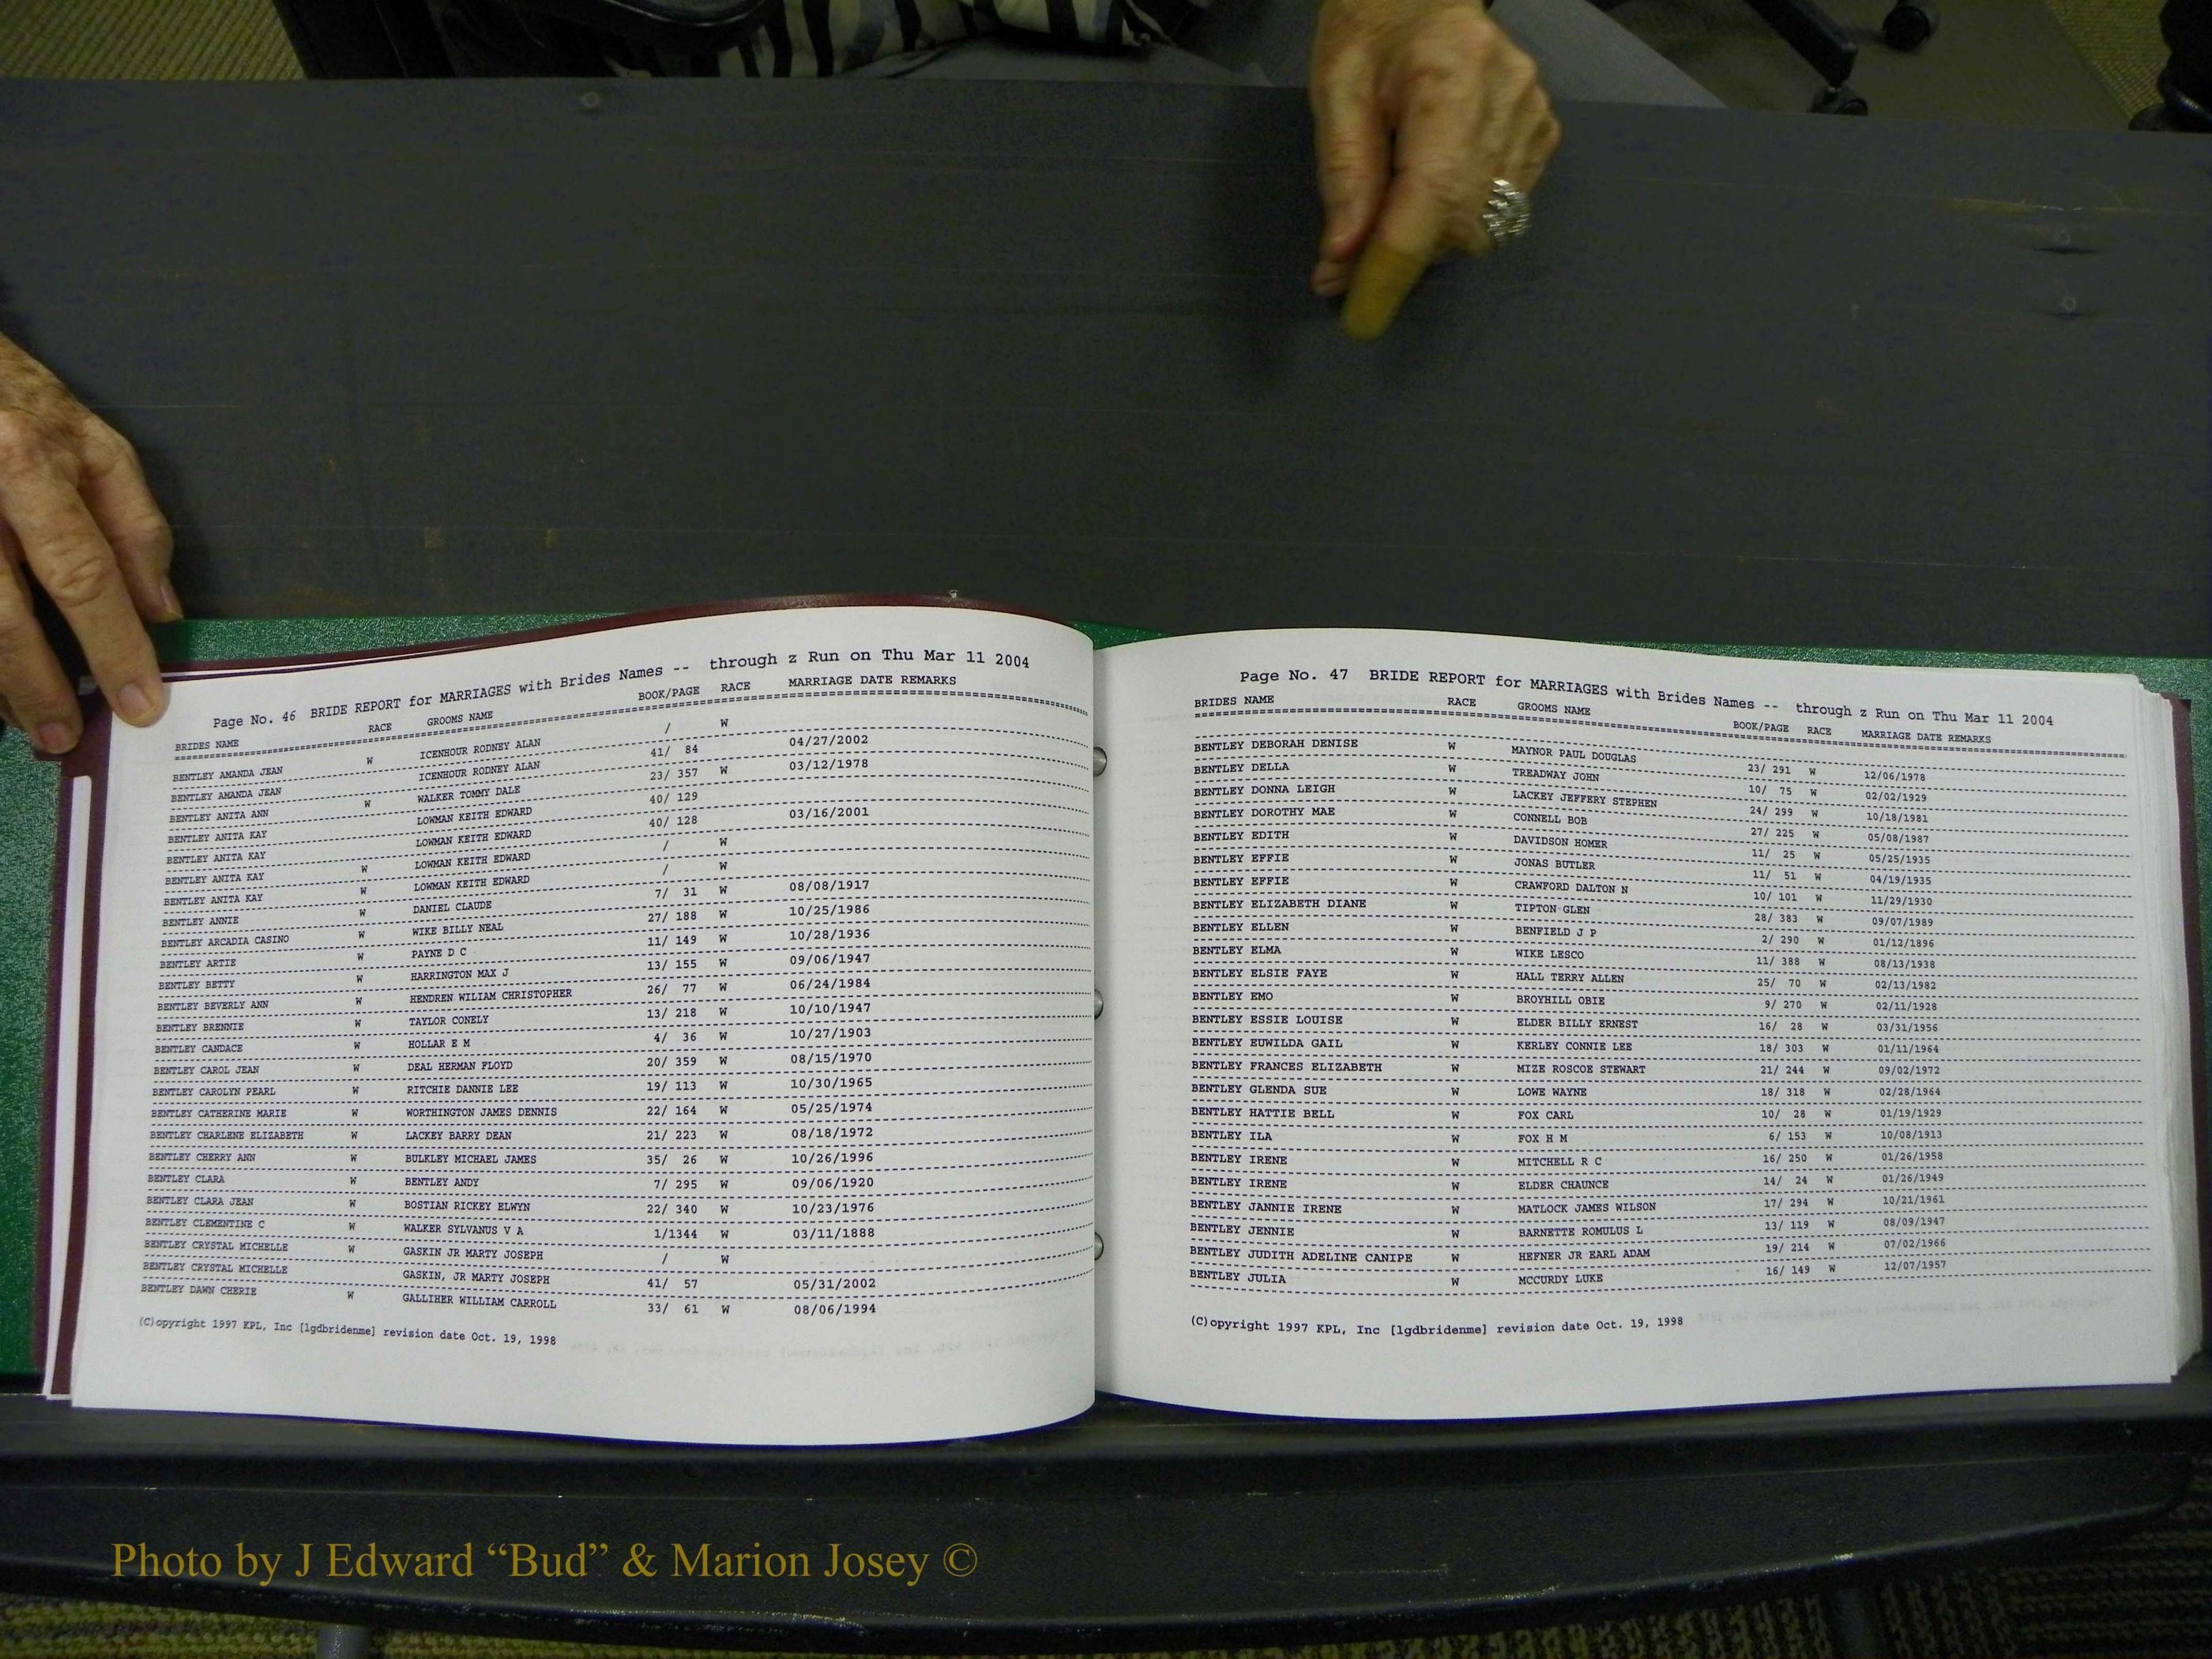 Page No. 46 BRIDE REPORT for MARRIAGES with Brides Names -- through z Run on Thu Mar 11 2004
BRIDES NAME RACE GROOMS NAME BOOK/PAGE RACE MARRIAGE DATE REMARKS
BENTLEY AMANDA JEAN W ICENHOUR RODNEY ALAN / W
BENTLEY AMANDA JEAN ICENHOUR RODNEY ALAN 41/ 84 04/27/2002
BENTLEY ANITA ANN W WALKER TOMMY DALE 23/ 357 W 03/12/1978
BENTLEY ANITA KAY LOWMAN KEITH EDWARD 40/ 129
BENTLEY ANITA KAY LOWMAN KEITH EDWARD 40/ 128 03/16/2001
BENTLEY ANITA KAY W LOWMAN KEITH EDWARD / W
BENTLEY ANITA KAY W LOWMAN KEITH EDWARD / W
BENTLEY ANNIE W DANIEL CLAUDE 7/ 31 W 08/08/1917
BENTLEY ARCADIA CASINO W WIKE BILLY NEAL 27/ 188 W 10/25/1986
BENTLEY ARTIE W PAYNE D C 11/ 149 W 10/28/1936
BENTLEY BETTY W HARRINGTON MAX J 13/ 155 W 09/06/1947
BENTLEY BEVERLY ANN W HENDREN WILIAM CHRISTOPHER 26/ 77 W 06/24/1984
BENTLEY BRENNIE W TAYLOR CONELY 13/ 218 W 10/10/1947
BENTLEY CANDACE W HOLLAR E M 4/ 36 W 10/27/1903
BENTLEY CAROL JEAN W DEAL HERMAN FLOYD 20/ 359 W 08/15/1970
BENTLEY CAROLYN PEARL W RITCHIE DANNIE LEE 19/ 113 W 10/30/1965
BENTLEY CATHERINE MARIE W WORTHINGTON JAMES DENNIS 22/ 164 W 05/25/1974
BENTLEY CHARLENE ELIZABETH W LACKEY BARRY DEAN 21/ 223 W 08/18/1972
BENTLEY CHERRY ANN W BULKLEY MICHAEL JAMES 35/ 26 W 10/26/1996
BENTLEY CLARA W BENTLEY ANDY 7/ 295 W 09/06/1920
BENTLEY CLARA JEAN W BOSTIAN RICKEY ELWYN 22/ 340 W 10/23/1976
BENTLEY CLEMENTINE C W WALKER SYLVANUS V A 1/1344 W 03/11/1888
BENTLEY CRYSTAL MICHELLE W GASKIN JR MARTY JOSEPH / W
BENTLEY CRYSTAL MICHELLE GASKIN, JR MARTY JOSEPH 41/ 57 05/31/2002
BENTLEY DAWN CHERIE W GALLIHER WILLIAM CARROLL 33/ 61 W 08/06/1994
(C)opyright 1997 KPL, Inc [lgdbridenme] revision date Oct. 19, 1998
Page No. 47 BRIDE REPORT for MARRIAGES with Brides Names -- through z Run on Thu Mar 11 2004
BRIDES NAME RACE GROOMS NAME BOOK/PAGE RACE MARRIAGE DATE REMARKS
BENTLEY DEBORAH DENISE W MAYNOR PAUL DOUGLAS 23/ 291 W 12/06/1978
BENTLEY DELLA W TREADWAY JOHN 10/ 75 W 02/02/1929
BENTLEY DONNA LEIGH W LACKEY JEFFERY STEPHEN 24/ 299 W 10/18/1981
BENTLEY DOROTHY MAE W CONNELL BOB 27/ 225 W 05/08/1987
BENTLEY EDITH W DAVIDSON HOMER 11/ 25 W 05/25/1935
BENTLEY EFFIE W JONAS BUTLER 11/ 51 W 04/19/1935
BENTLEY EFFIE W CRAWFORD DALTON N 10/ 101 W 11/29/1930
BENTLEY ELIZABETH DIANE W TIPTON GLEN 28/ 383 W 09/07/1989
BENTLEY ELLEN W BENFIELD J P 2/ 290 W 01/12/1896
BENTLEY ELMA W WIKE LESCO 11/ 388 W 08/13/1938
BENTLEY ELSIE FAYE W HALL TERRY ALLEN 25/ 70 W 02/13/1982
BENTLEY EMO W BROYHILL OBIE 9/ 270 W 02/11/1928
BENTLEY ESSIE LOUISE W ELDER BILLY ERNEST 16/ 28 W 03/31/1956
BENTLEY EUWILDA GAIL W KERLEY CONNIE LEE 18/ 303 W 01/11/1964
BENTLEY FRANCES ELIZABETH W MIZE ROSCOE STEWART 21/ 244 W 09/02/1972
BENTLEY GLENDA SUE W LOWE WAYNE 18/ 318 W 02/28/1964
BENTLEY HATTIE BELL W FOX CARL 10/ 28 W 01/19/1929
BENTLEY ILA W FOX H M 6/ 153 W 10/08/1913
BENTLEY IRENE W MITCHELL R C 16/ 250 W 01/26/1958
BENTLEY IRENE W ELDER CHAUNCE 14/ 24 W 01/26/1949
BENTLEY JANNIE IRENE W MATLOCK JAMES WILSON 17/ 294 W 10/21/1961
BENTLEY JENNIE W BARNETTE ROMULUS L 13/ 119 W 08/09/1947
BENTLEY JUDITH ADELINE CANIPE W HEFNER JR EARL ADAM 19/ 214 W 07/02/1966
BENTLEY JULIA W MCCURDY LUKE 16/ 149 W 12/07/1957
(C)opyright 1997 KPL, Inc [lgdbridenme] revision date Oct. 19, 1998
Photo by J Edward “Bud” & Marion Josey ©